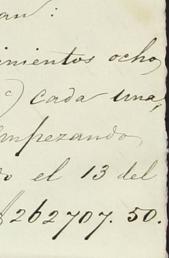 an:
mientos ocho
) cada una,
mpezando
o el 13 del
$262707.50.